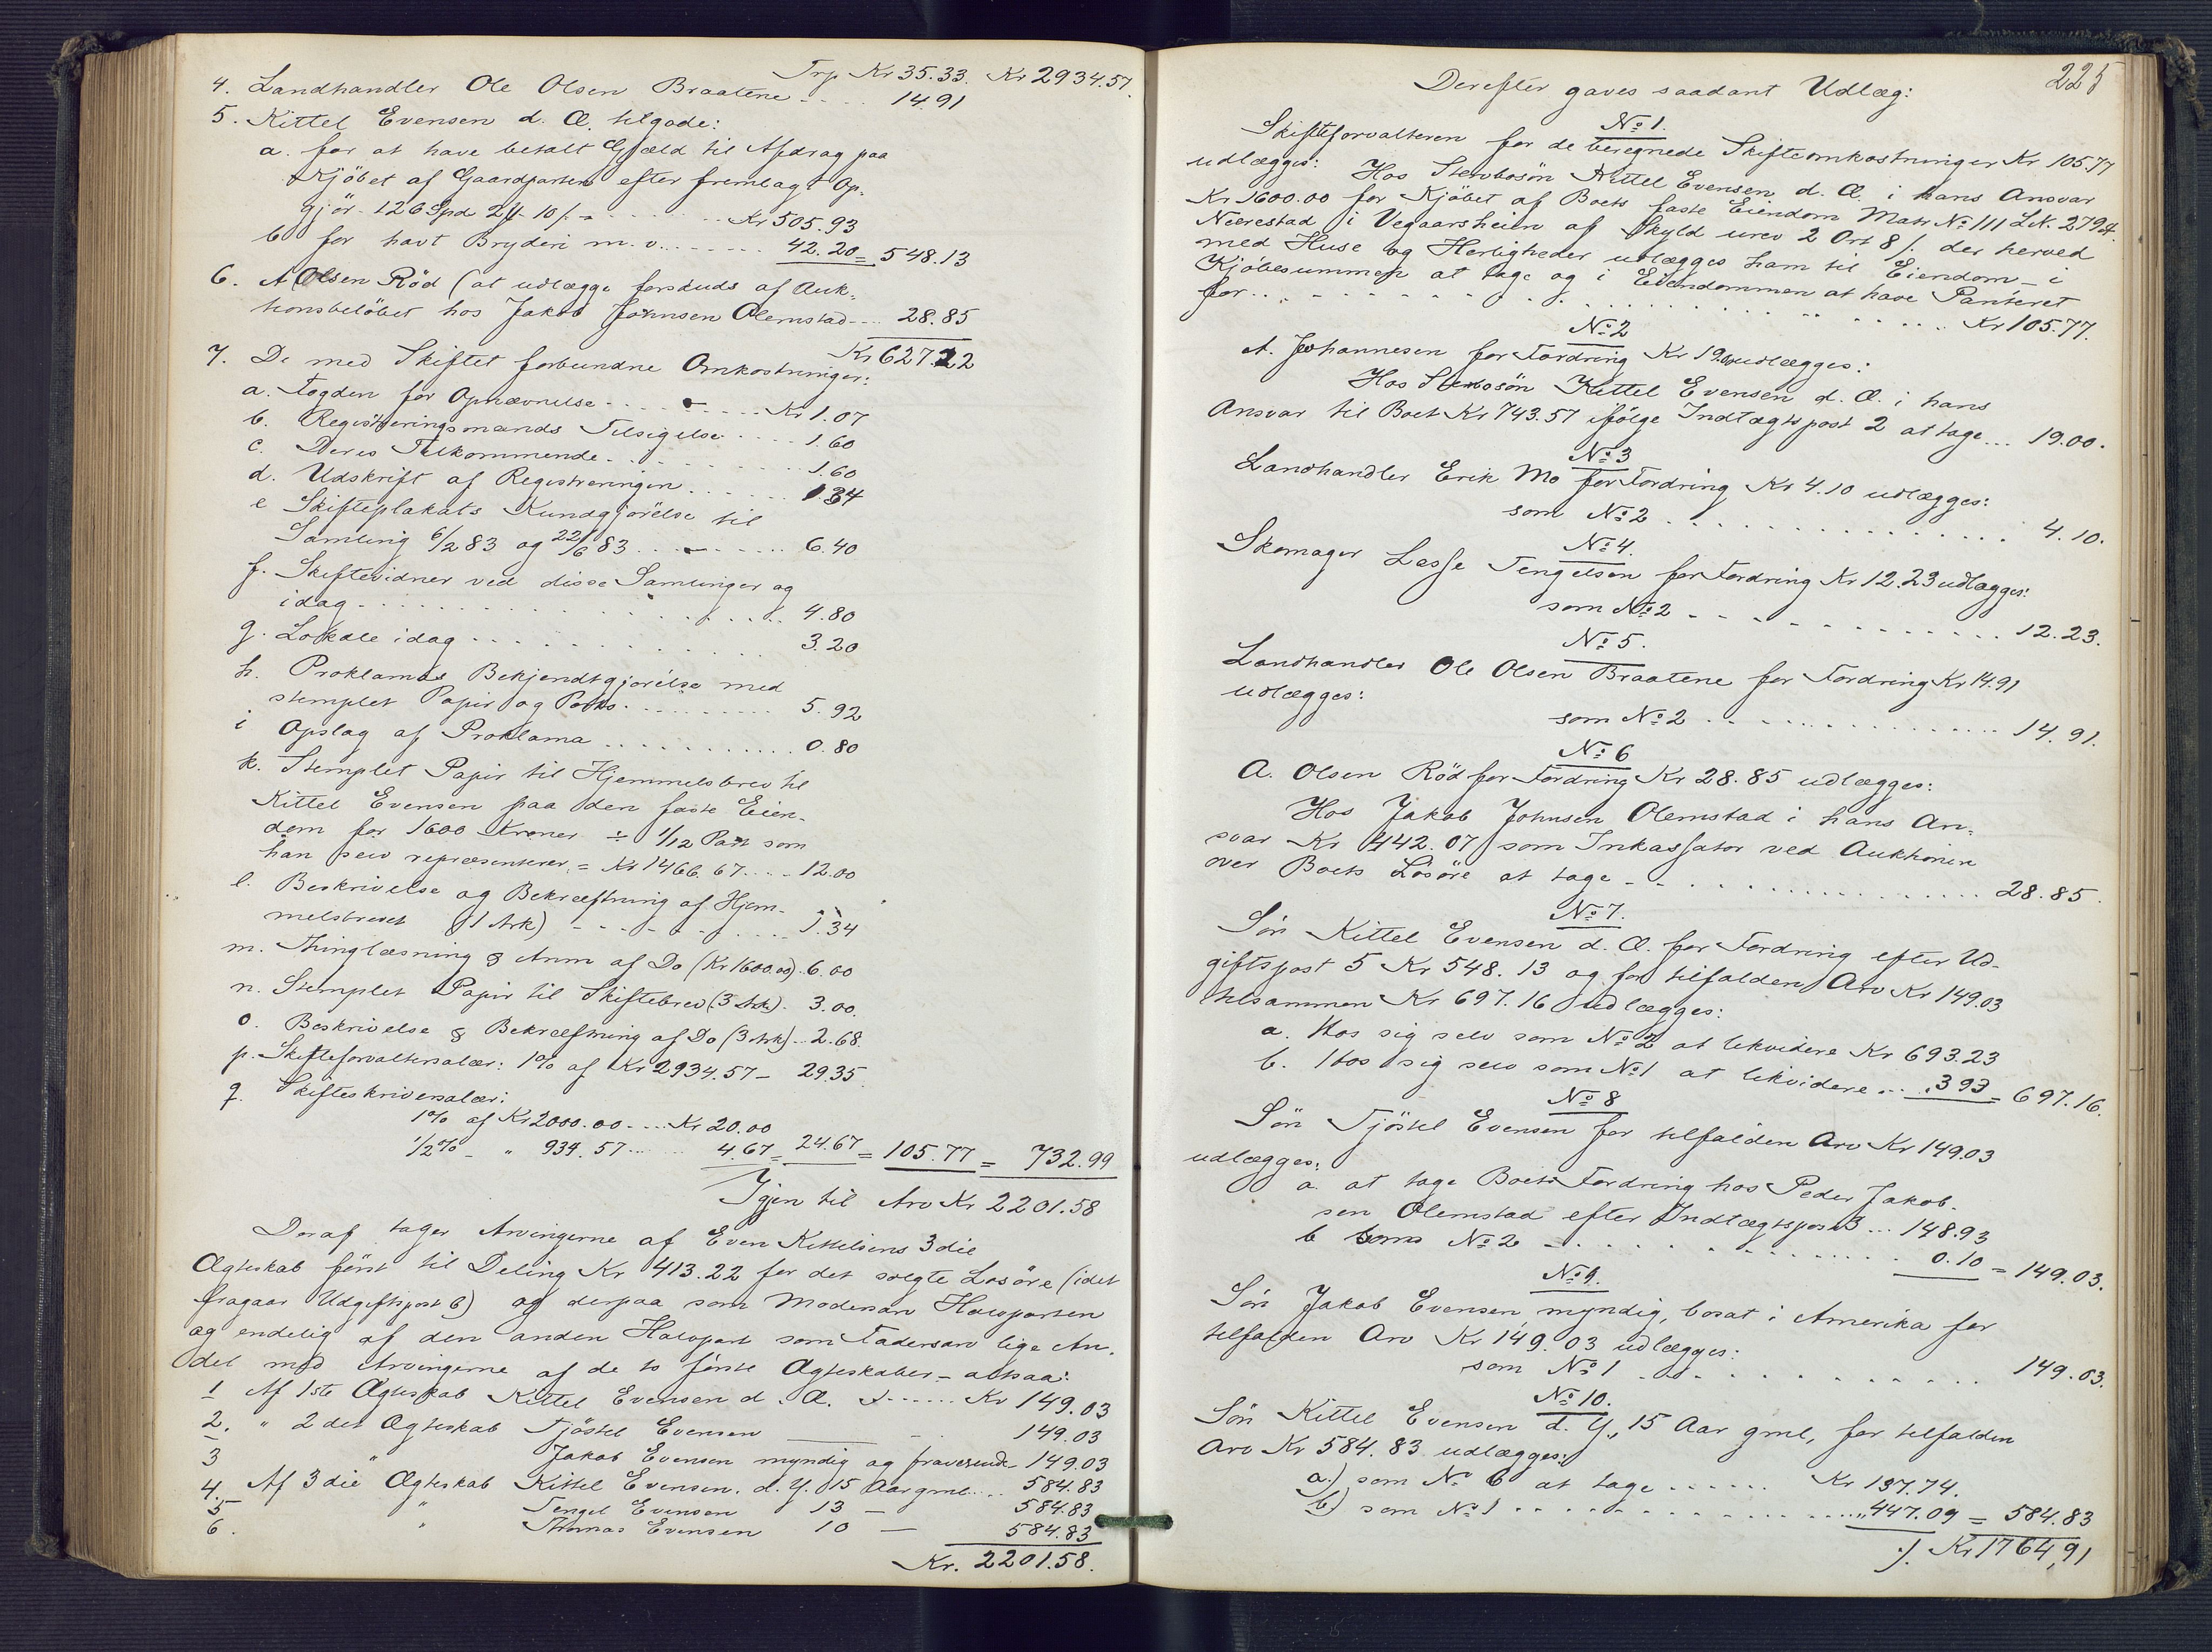 Trp Kr 35.33. Kr 2934.57.
4. Landhandler Ole Olsen Braatene .... 14.91
5. Kittel Evensen d. Æ. tilgode:
a. for at have betalt Gjæld til Afdrag paa
Kjöbet af Gaardparten efter fremlagt Op-
gjör 126 Spd 2 10 ... Kr 505.93
b for havt Bryderi m. v. .... 42.20 = 548.13
6. A Olsen Röd (at udlægge forskuds af Auk-
tionsbelöbet hos Jakob Johnsen Olemstad ... 28.85
Kr 627.22
7. De med Skiftet forbundne Omkostninger:
a. Fogden for Opnævnelse ..... Kr 1.07
b. Registreringsmænds Tilsigelse .... 1.60
c. Deres Tilkommende ..... 1.60
d. Udskrift af Registreringen ...... 1.34
e Skifteplakats Kundgjörelse til
Samling 6/2 83 og 22/6 83 ...... 6.40
f. Skiftevidner ved disse Samlinger og
idag ........ 4.80
g. Lokale idag ....... 3.20
h. Proklamas Bekjendtgjörelse med
stemplet Papir og Porto ....... 5.92
i Opslag af Proklama ........ 0.80
k. Stemplet Papir til Hjemmelsbrev til
Kittel Evensen paa den faste Eien-
dom for 1600 Kroner ÷ 1/12 Part som
han selv repræsenterer = Kr 1466.67 .... 12.00
l. Beskrivelse og Bekræftning af Hjem-
melsbrevet (1 Ark) ....... 1.34
m. Thinglæsning & Anm af Do (Kr 1600.00). 6.00
n. Stemplet Papir til Skiftebrev (3 Ark). 3.00.
o. Beskrivelse & Bekræftning af Do (3 Ark) .. 2.68.
p. Skifteforvaltersalær: 1% af Kr 2934.57 - 29.35
q. Skifteskriversalær:
1% af Kr 2000.00 .... Kr 20.00
1/2% - " 934.57 .... 4.67 = 24.67 = 105.77 = 732.99
Igjen til Arv Kr 2201.58
Deraf tager Arvingerne af Even Kittelsens 3die
Ægteskab först til Deling Kr 413.22 for det solgte Lösöre (idet
fragaar Udgiftspost 6) og derpaa som Modersarv Halvparten
og endelig af den anden Halvpart som Fadersarv lige An-
del med Arvingerne af de to förste Ægteskaber - altsaa:
1 Af 1ste Ægteskab Kittel Evensen d. Æ. ...... Kr 149.03
2. " 2det Ægteskab Tjöstel Evensen 149.03
3 " Jakob Evensen myndig og fraværende 149.03
4. Af 3die Ægteskab Kittel Evensen. d. Y. 15 Aar gml ... 584.83
5 " Tengel Evensen 13 — 584.83
6. " Thomas Evensen 10 — 584.83
Kr. 2201.58.
225
Derefter gaves saadant Udlæg:
No 1.
Skifteforvalteren for de beregnede Skifteomkostninger Kr 105.77
udlægges: Hos Stervbosön Kittel Evensen d. Æ. i hans Ansvar
Kr 1600.00 for Kjöbet af Boets faste Eiendom Matr No 111 L.N. 279
Neerestad i Vegaarsheien af Skyld urev 2 Ort 8 /. der herved
med Huse og Herligheder udlægges ham til Eiendom - i
Kjöbesummen at tage og i Eiendommen at have Panteret
for ......... Kr 105.77.
No 2
A. Johannesen for Fordring Kr 19.00 udlægges:
Hos Stervbosön Kittel Evensen d. Æ. i hans
Ansvar til Boet Kr 743.57 ifölge Indtægtspost 2 at tage ... 19.00.
No 3
Landhandler Erik Mo for Fordring Kr 4.10 udlægges:
som No 2 ........ 4.10.
No 4.
Skomager Lasse Tengelsen for Fordring Kr 12.23 udlægges:
som No 2 ........ 12.23.
No 5.
Landhandler Ole Olsen Braatene for Fordring Kr 14.91
udlægges:
som No 2 ........ 14.91.
No 6
A. Olsen Röd for Fordring Kr 28.85 udlægges:
Hos Jakob Johnsen Olemstad i hans An-
svar Kr 442.07 som Inkassator ved Auktionen
over Boets Lösöre at tage ........ 28.85.
No 7.
Sön Kittel Evensen d. Æ. for Fordring efter Ud-
giftspost 5 Kr 548.13 og for tilfalden Arv Kr 149.03
tilsammen Kr 697.16 udlægges:
a. Hos sig selv som No 2 at likvidere Kr 693.23
b. Hos sig selv som No 1 at likvidere ... 3.93 = 697.16.
No 8
Sön Tjöstel Evensen for tilfalden Arv Kr 149.03
udlægges:
a. at tage Boets Fordring hos Peder Jakob-
sen Olemstad efter Indtægtspost 3 ... 148.93
b som No 2 ........ 0.10 = 149.03.
No 9.
Sön Jakob Evensen, myndig, bosat i Amerika for
tilfalden Arv Kr 149.03 udlægges:
som No 1 ........ 149.03.
No 10.
Sön Kittel Evensen d. Y., 15 Aar gml, for tilfalden
Arv Kr 584.83 udlægges:
a.) som No 6 at tage ...... Kr 137.74.
b) som No 1 ........ " 447.09 = 584.83
./. Kr 1764,91